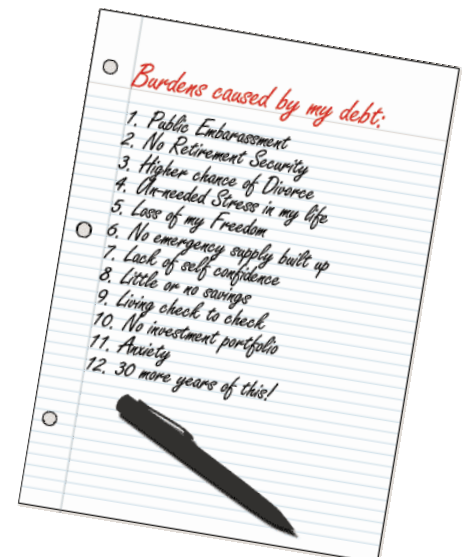 Burdens caused by my debt:
1. Public Embarassment
2. No Retirement Security
3. Higher chance of Divorce
4. Un-needed Stress in my life
5. Loss of my Freedom
6. No emergency supply built up
7. Lack of self confidence
8. Little or no savings
9. Living check to check
10. No investment portfolio
11. Anxiety
12. 30 more years of this!